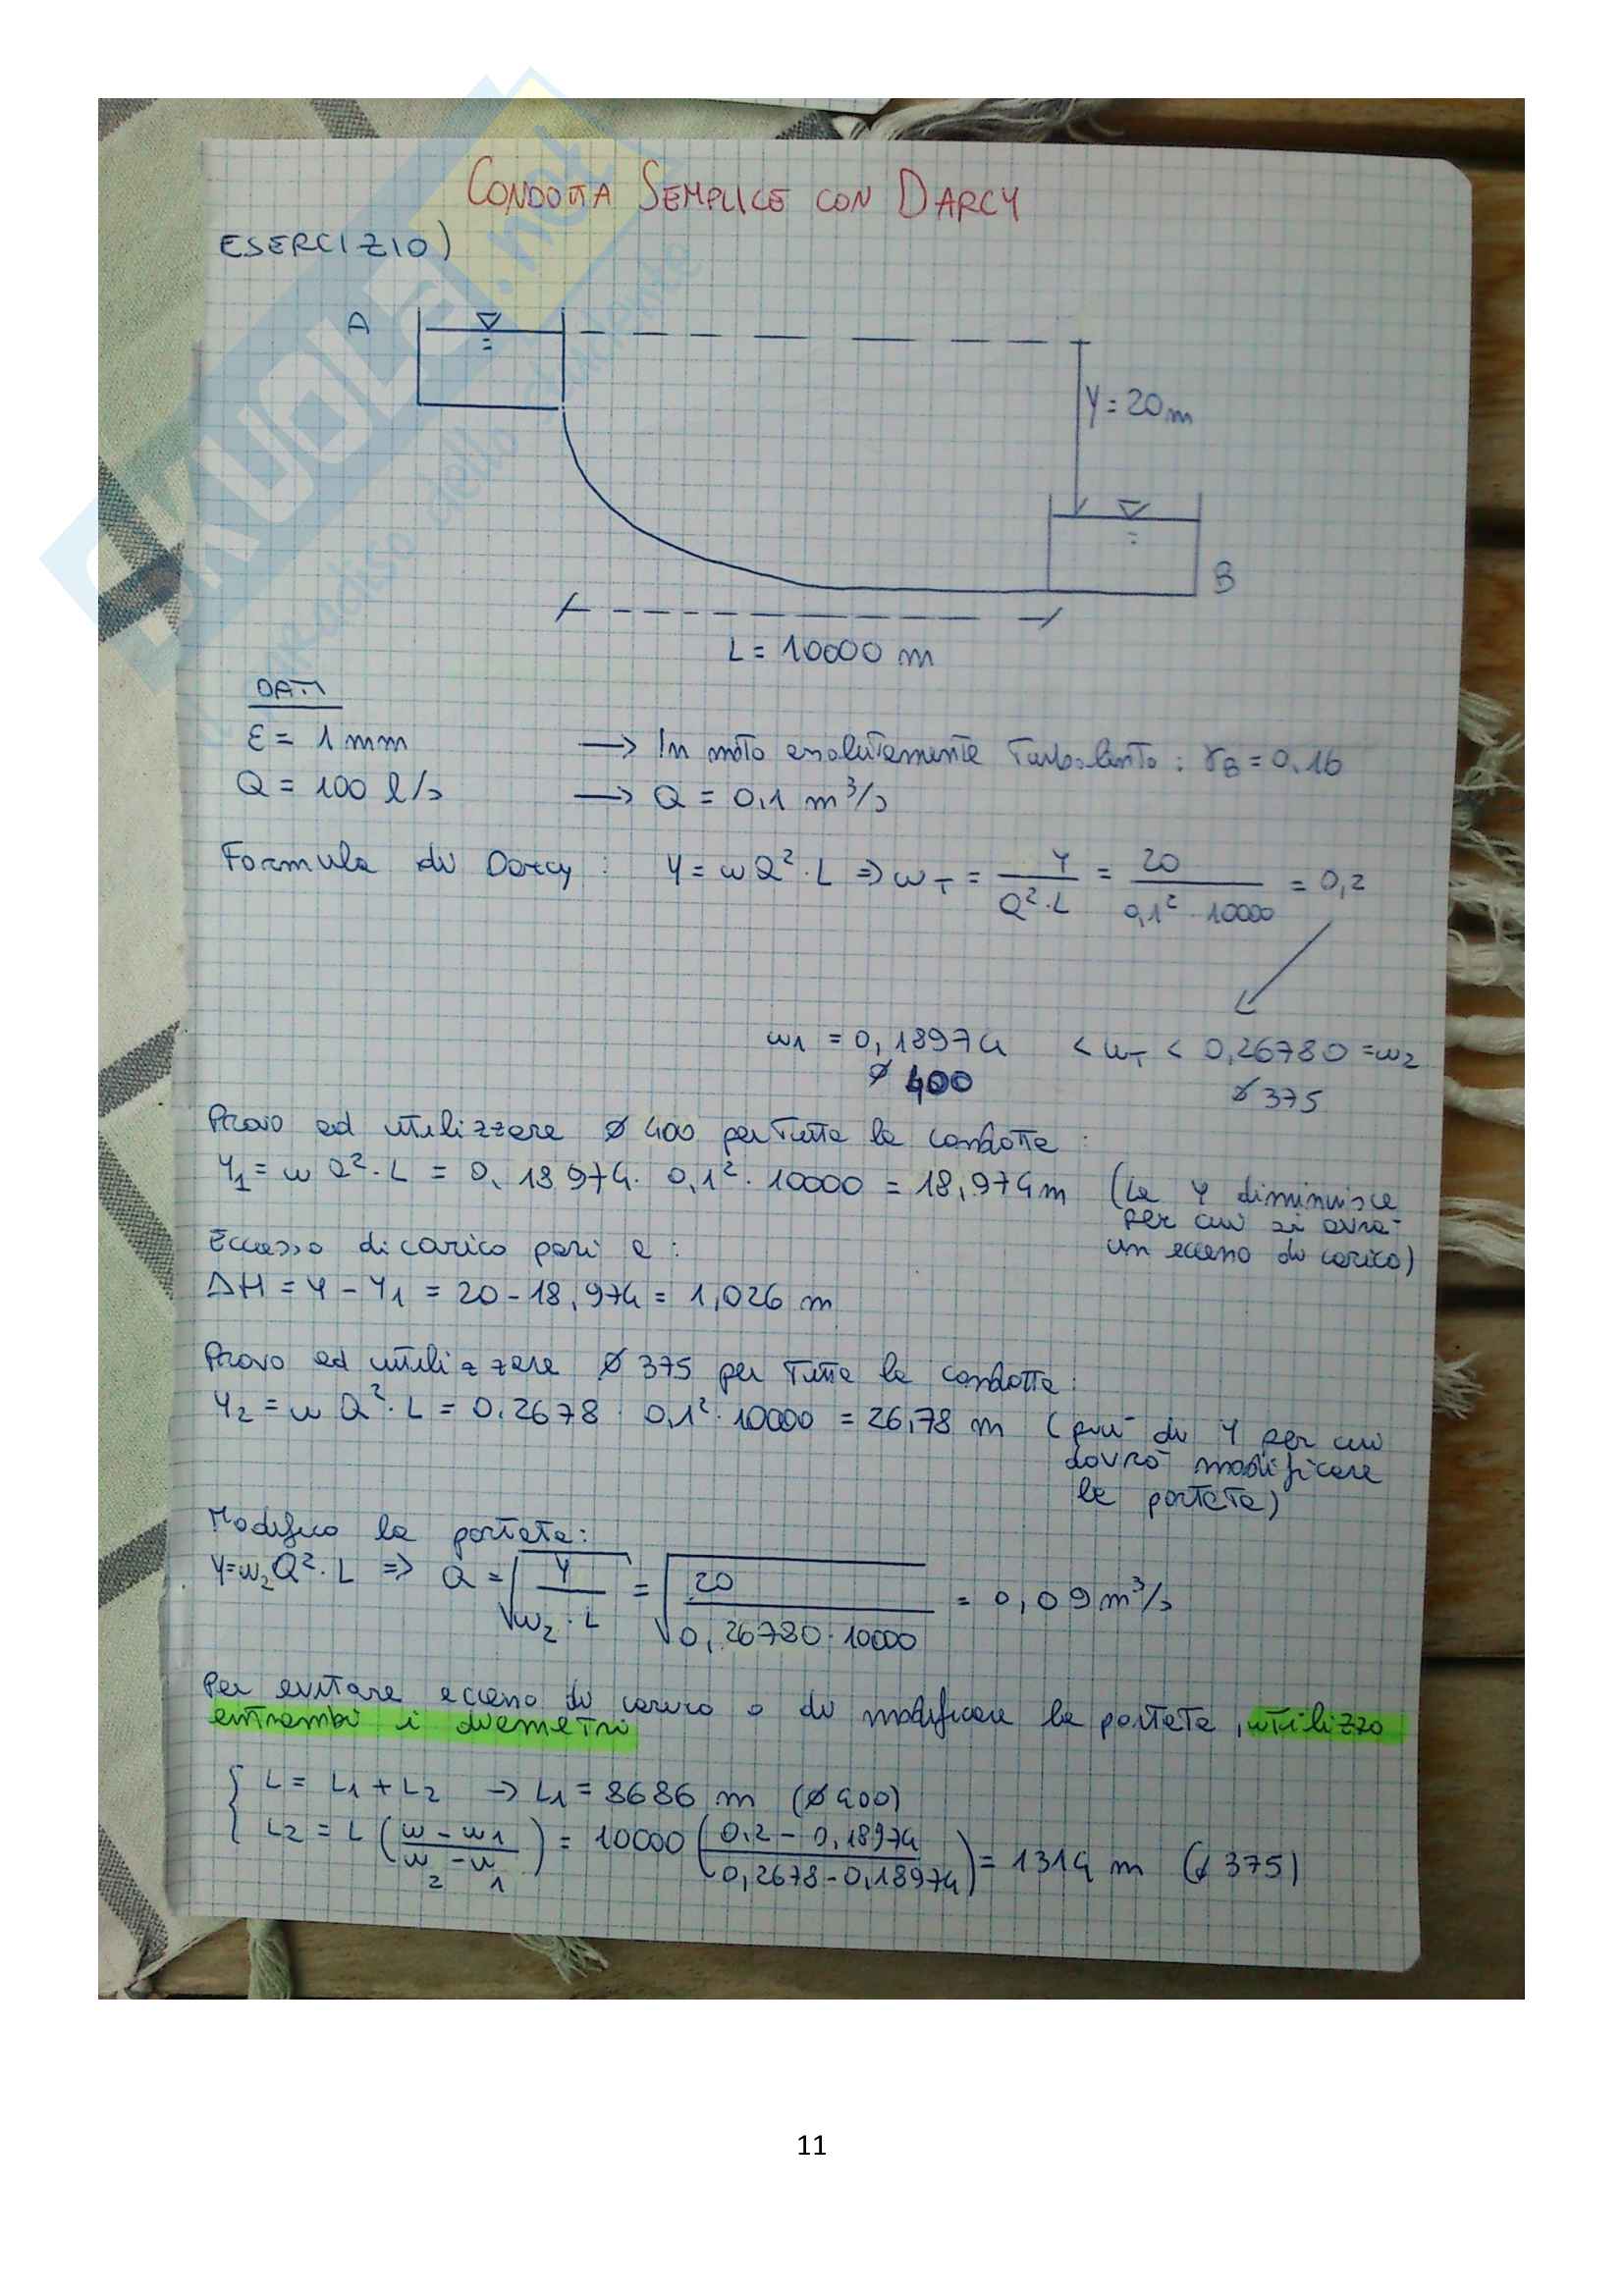 CONDOTTA SEMPLICE CON DARCY
ESERCIZIO)
A
Y = 20 m
B
L = 10000 m
DATI
ε = 1 mm → In moto assolutamente turbolento : γB = 0.16
Q = 100 l/s → Q = 0,1 m³/s
Formula di Darcy : Y = ωQ²·L ⇒ ωT = Y / (Q²·L) = 20 / (0,1² · 10000) = 0,2
ω1 = 0,18974 < ωT < 0,26780 = ω2
Ø 400 Ø 375
Provo ad utilizzare Ø 400 per tutta la condotta :
Y1 = ωQ²·L = 0,18974 · 0,1² · 10000 = 18,974 m (la Y diminuisce
per cui si avrà
un eccesso di carico)
Eccesso di carico pari a :
ΔH = Y - Y1 = 20 - 18,974 = 1,026 m
Provo ad utilizzare Ø 375 per tutta la condotta :
Y2 = ωQ²·L = 0.2678 · 0,1² · 10000 = 26,78 m (più di Y per cui
dovrò modificare
la portata)
Modifico la portata :
Y=ω2Q²·L ⇒ Q = √(Y / (ω2·L)) = √(20 / (0,26780·10000)) = 0,09 m³/s
Per evitare eccesso di carico o di modificare la portata, utilizzo
entrambi i diametri
{ L = L1 + L2 → L1 = 8686 m (Ø 400)
L2 = L ((ω - ω1) / (ω2 - ω1)) = 10000 ((0.2 - 0,18974) / (0,2678 - 0,18974)) = 1314 m (Ø 375)
11
SKUOLA.net
il paradiso dello studente